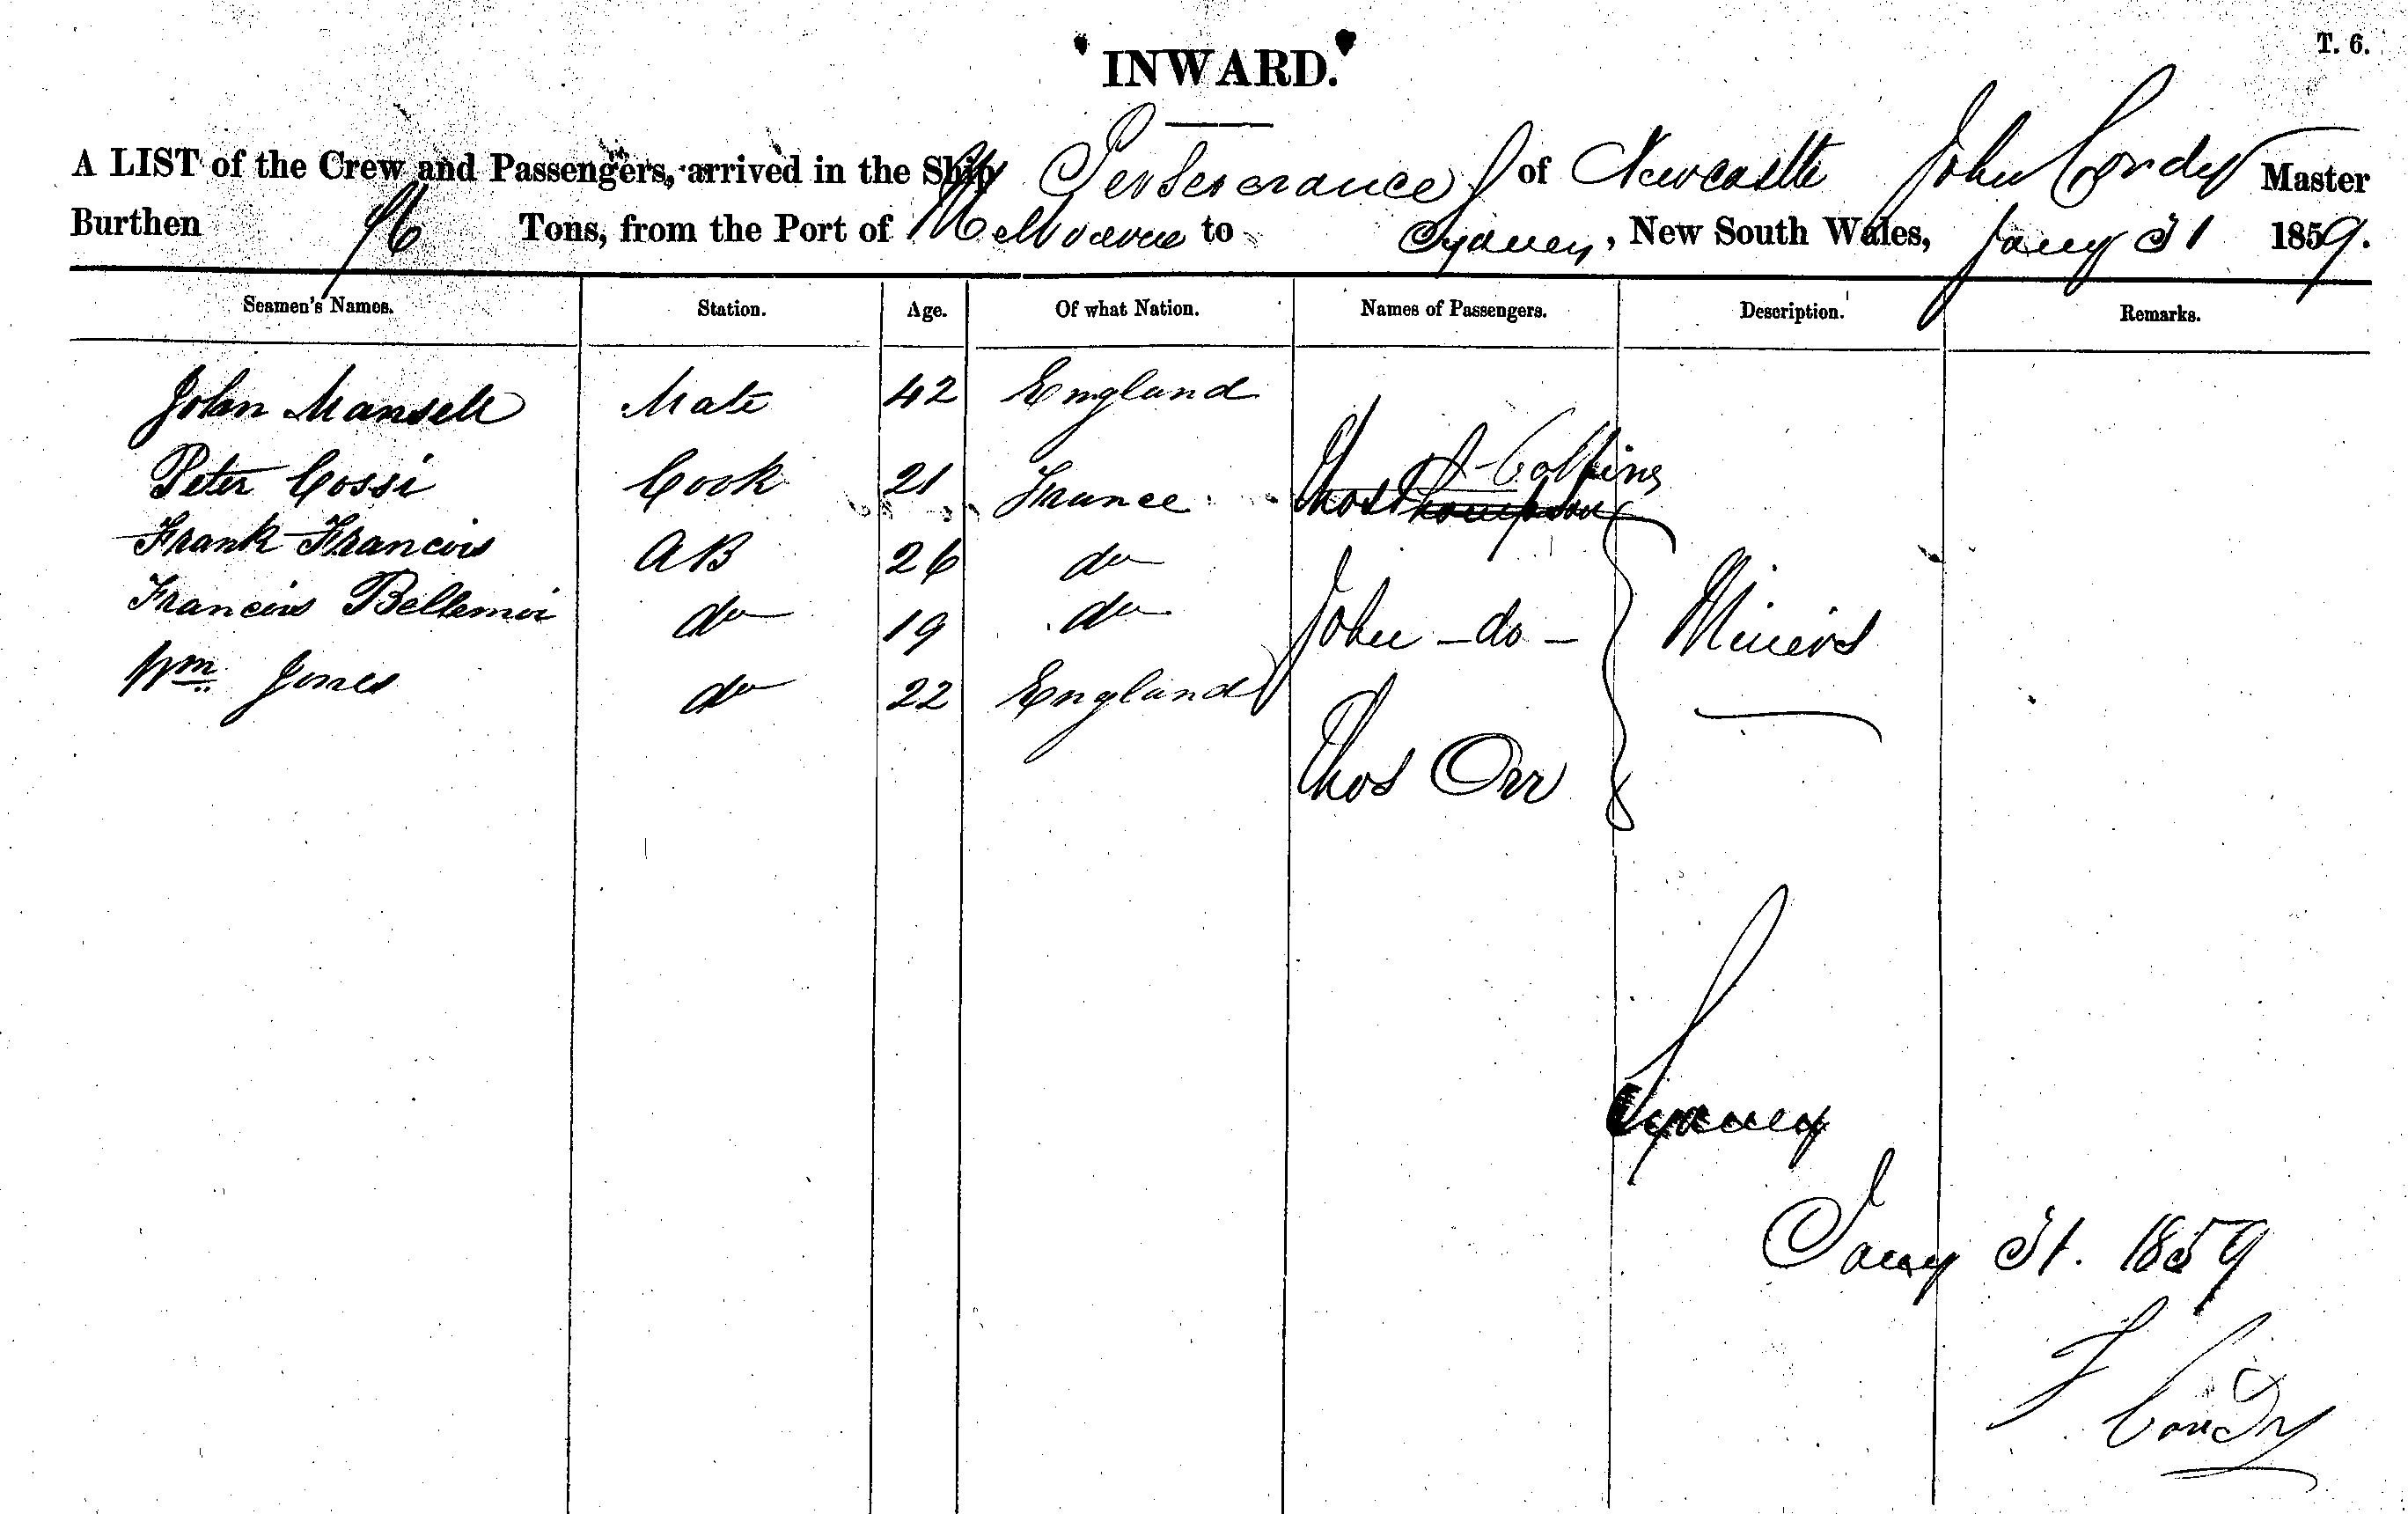 T. 6.
INWARD.
A LIST of the Crew and Passengers, arrived in the Ship Perseverance of Newcastle John Master
Burthen 96 Tons, from the Port of Melbourne to Sydney, New South Wales, Jany 31 1859.
Seamen's Names. Station. Age. Of what Nation. Names of Passengers. Description. Remarks.
John Mansell Mate 42 England
A Collins
Peter Cossi Cook 21 France Thos Thompson
Frank Francois AB 26 do
Francois do 19 do John - do - Miners
Wm Jones do 22 England
Thos Orr
Sydney
Jany 31. 1859